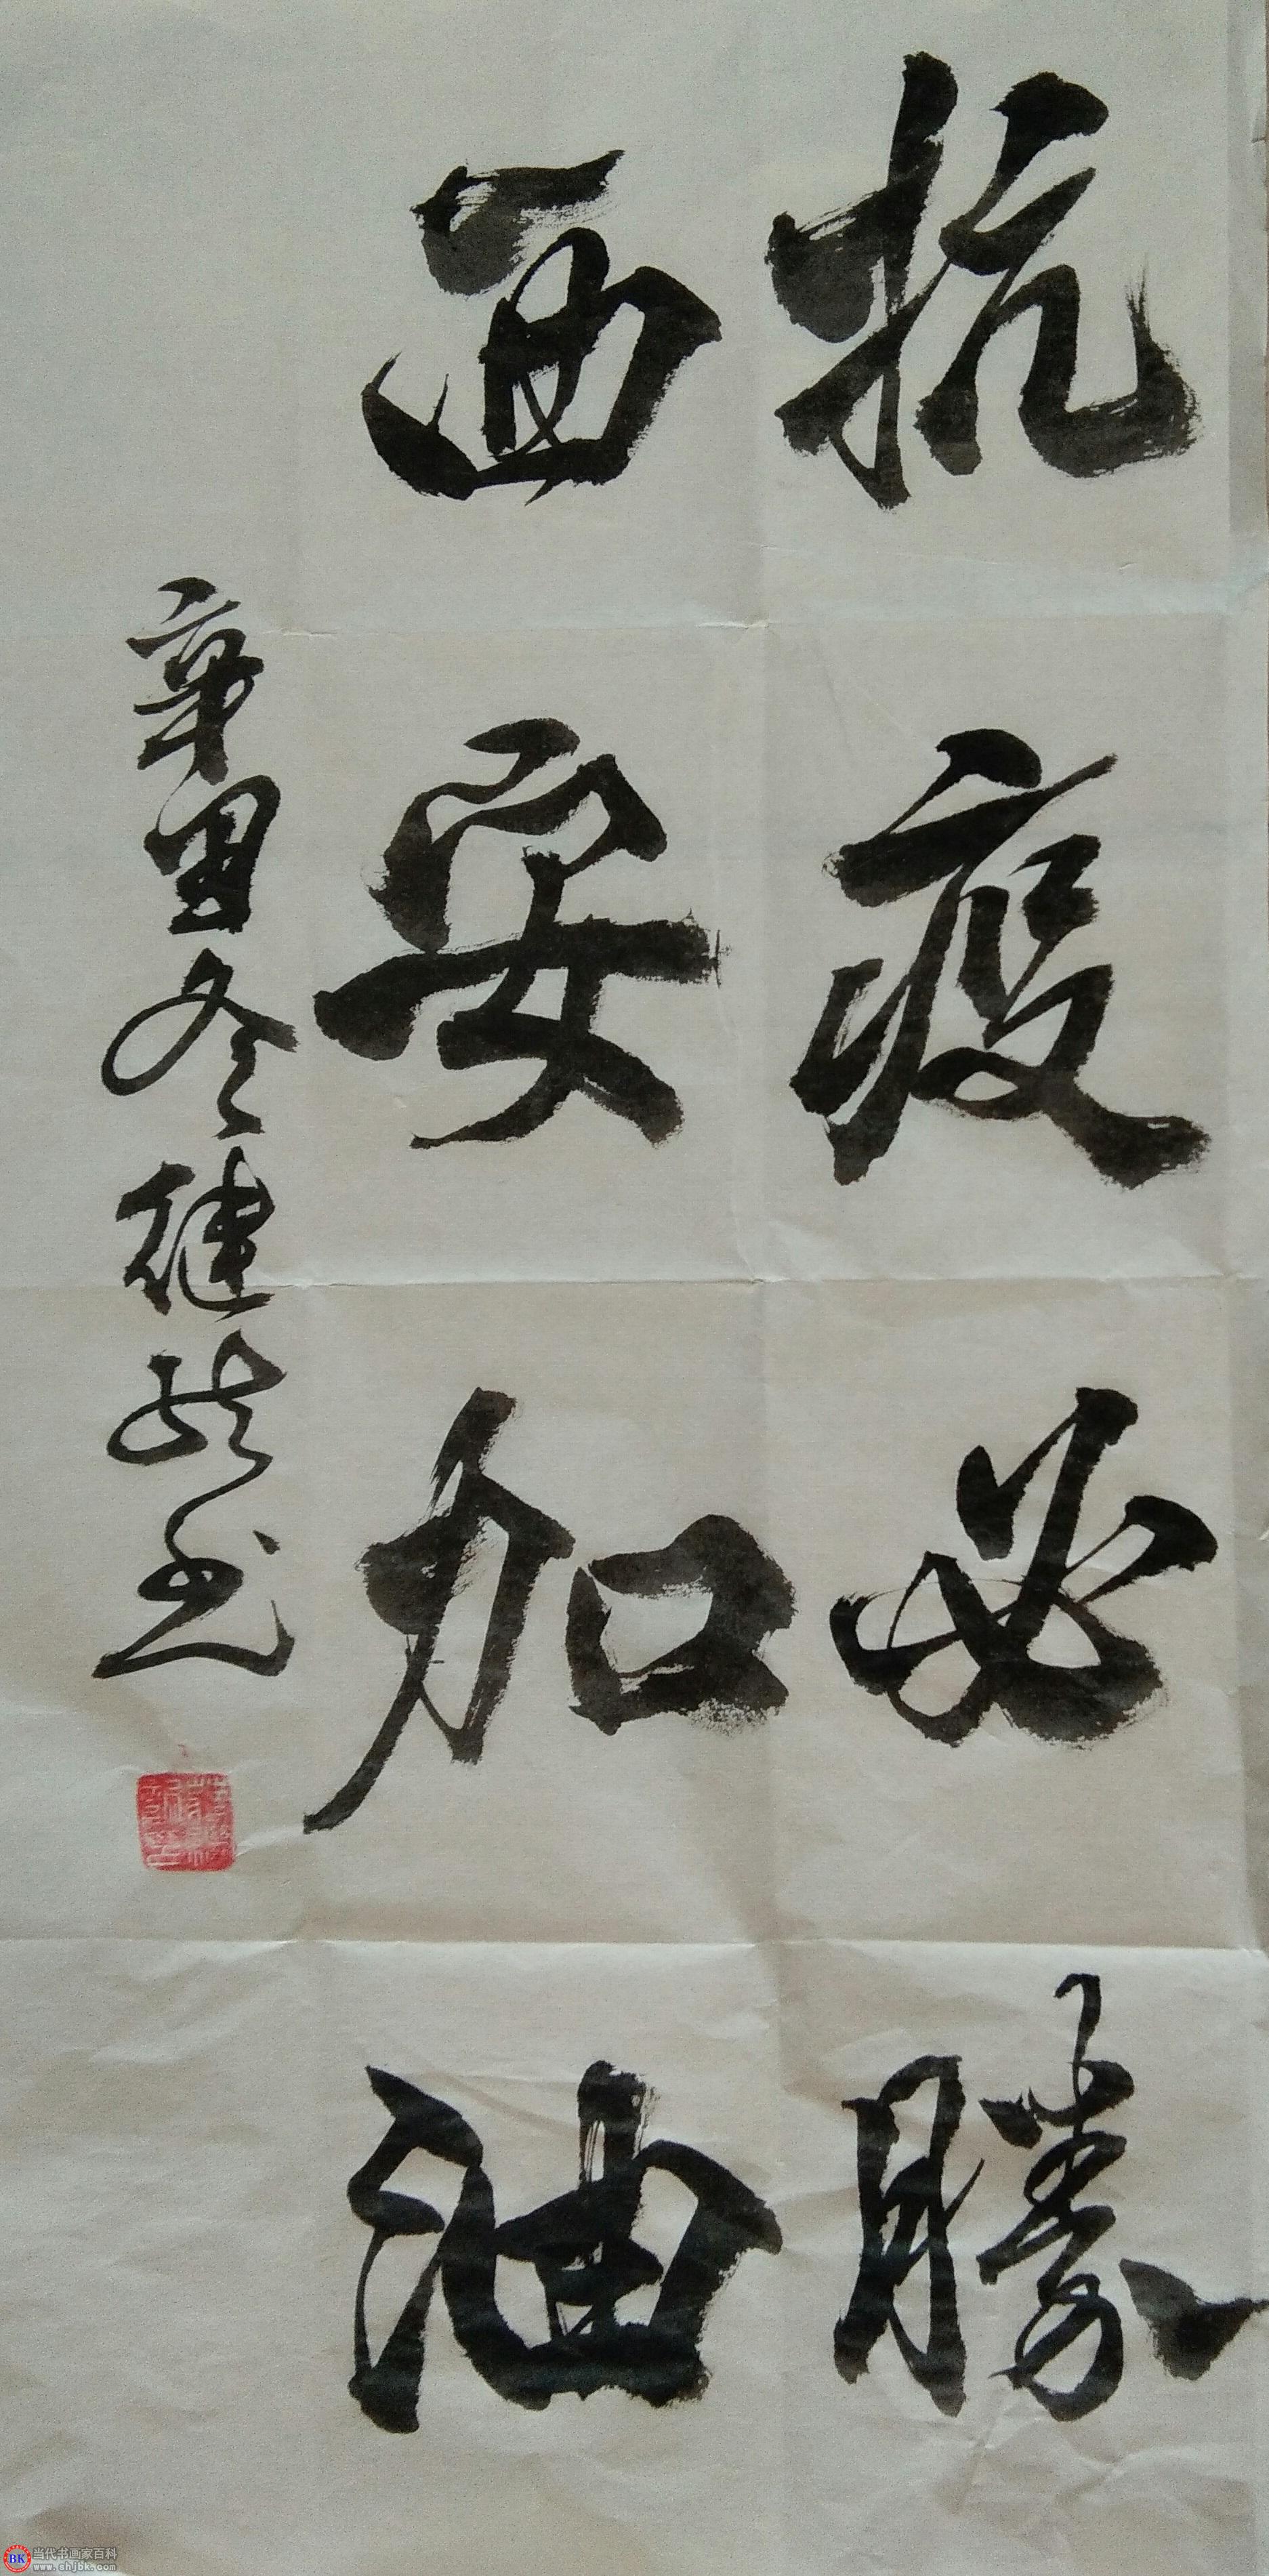 抗疫必勝
西安加油
辛丑冬健龍书
当代书画家百科
www.shjbk.com